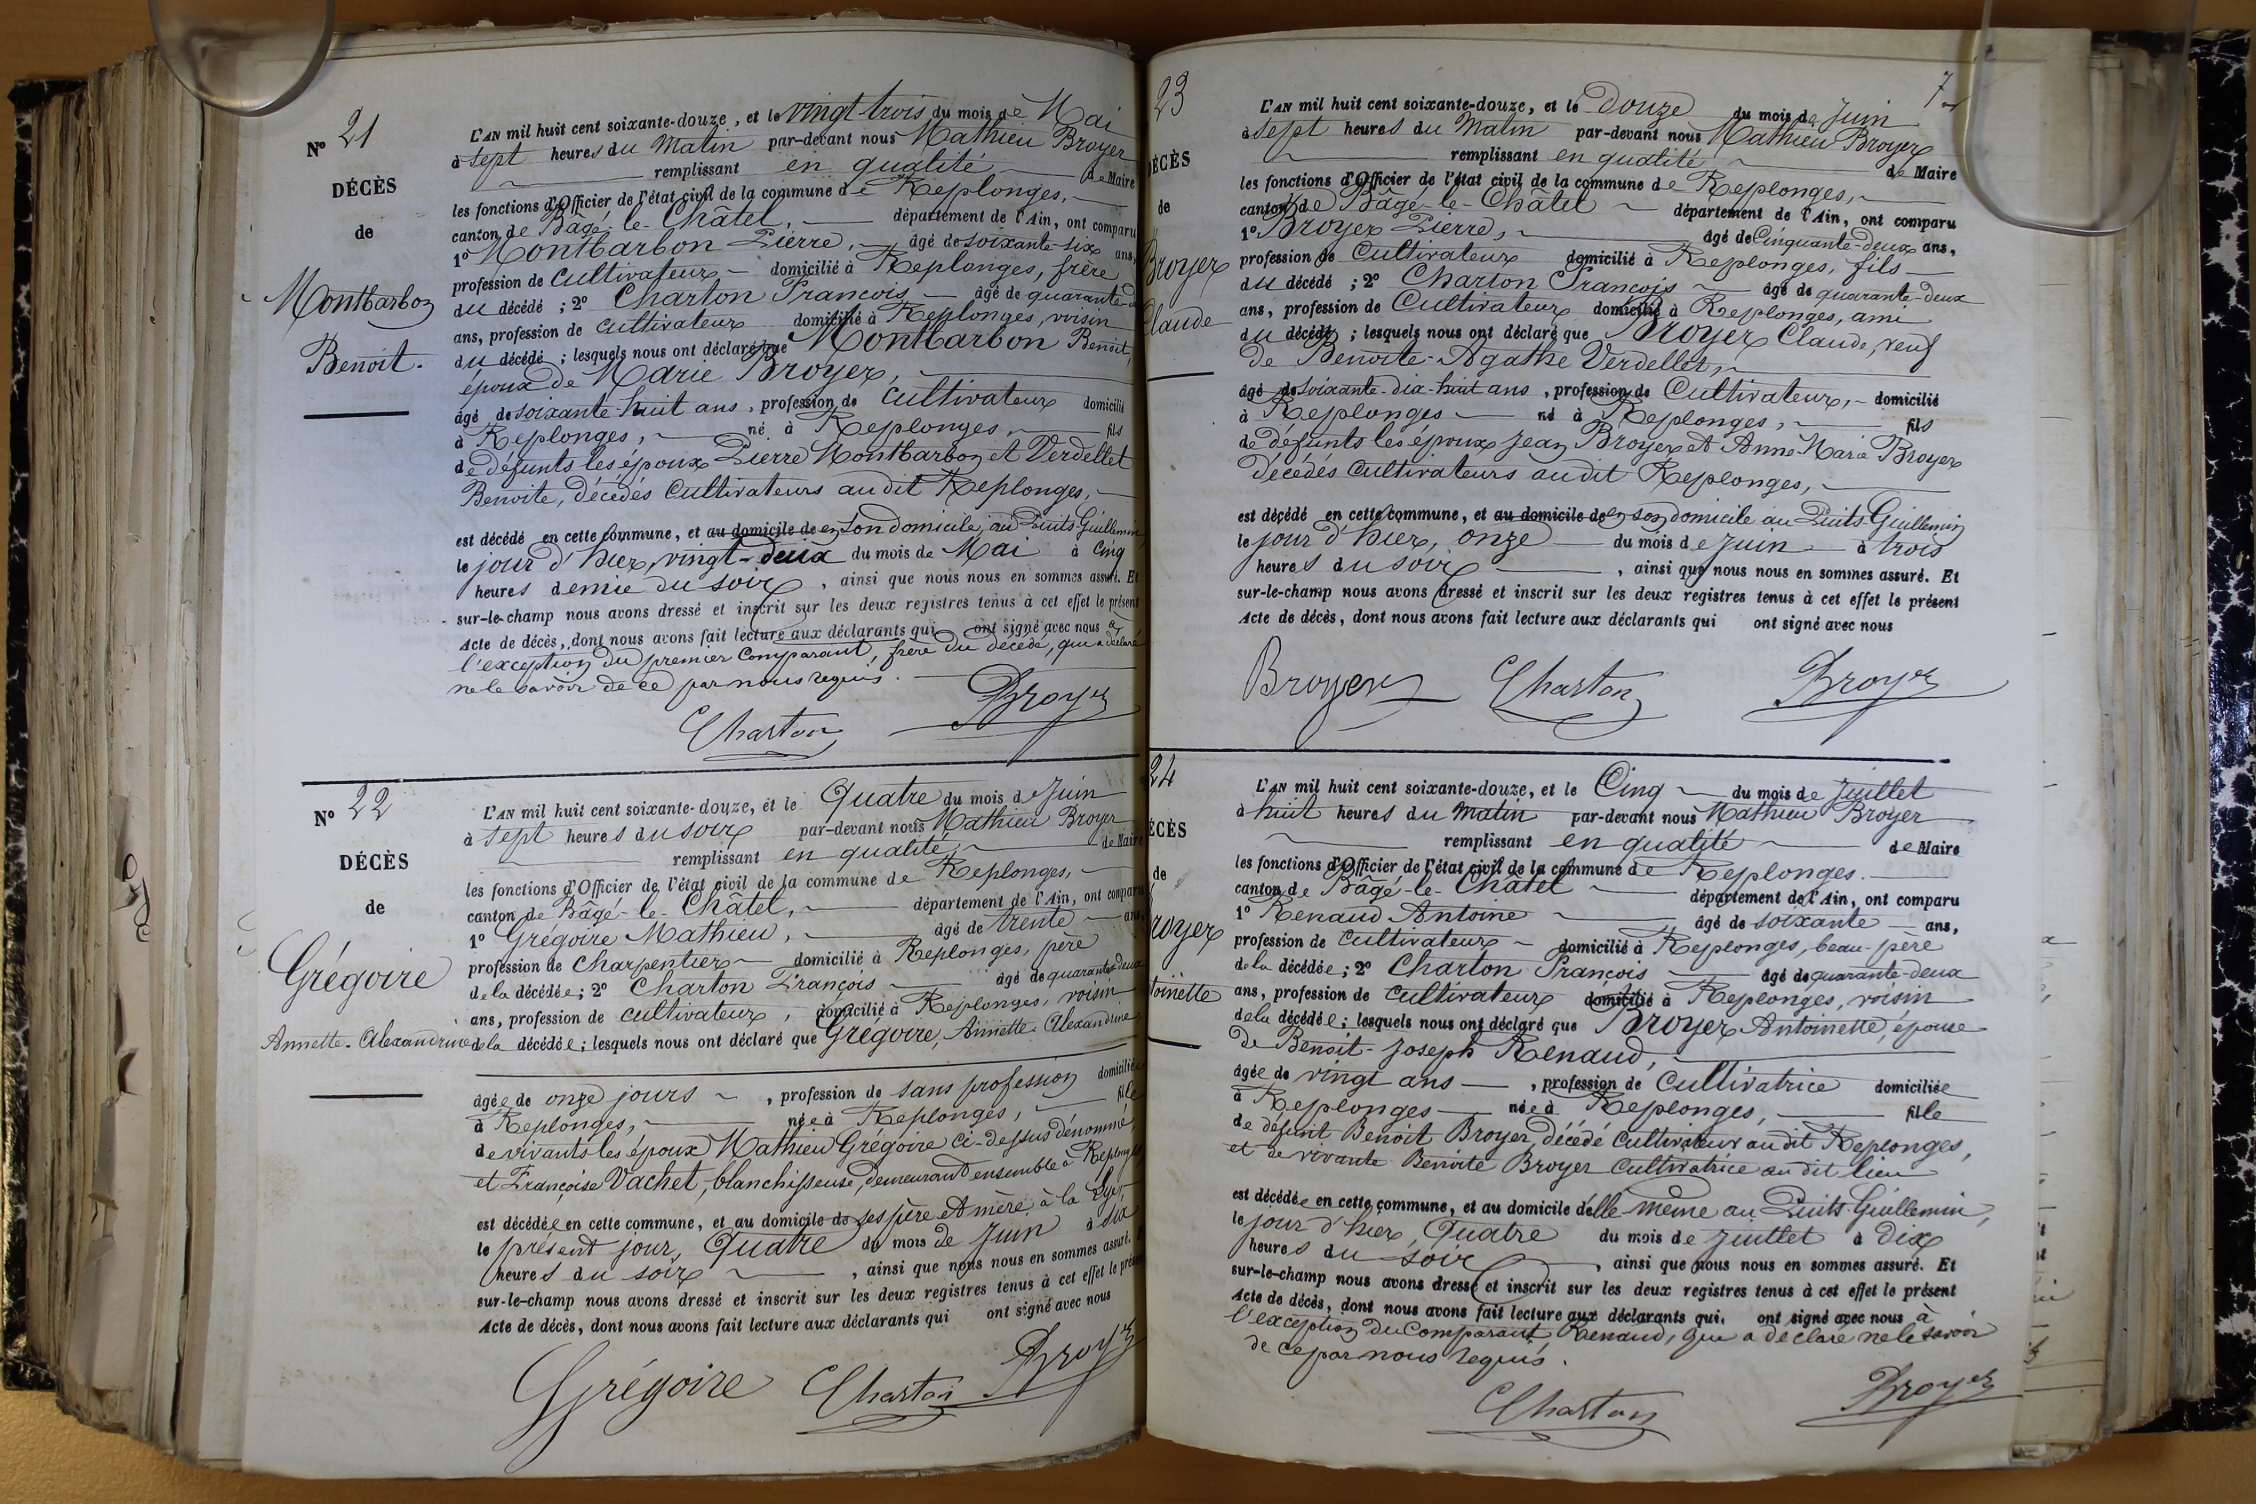 Nº 21
DÉCÈS
de
Montbarbon
Benoit.
L'AN mil huit cent soixante-douze, et le vingt-trois du mois de Mai
à sept heures du Matin par-devant nous Mathieu Broyer
remplissant en qualité de Maire
les fonctions d'Officier de l'état civil de la commune de Replonges,
canton de Bâgé-le-Châtel, département de l'Ain, ont comparu
1º Montbarbon Pierre, âgé de soixante-six ans,
profession de cultivateur domicilié à Replonges, frère
du décédé ; 2º Charton François âgé de quarante-d
ans, profession de cultivateur domicilié à Replonges, voisin
du décédé ; lesquels nous ont déclaré que Montbarbon Benoit,
époux de Marie Broyer,
âgé de soixante-huit ans, profession de cultivateur domicilié
à Replonges, né à Replonges, fils
de défunts les époux Pierre Montbarbon et Verdellet
Benoite, décédés Cultivateurs audit Replonges,
est décédé en cette commune, et au domicile de en son domicile, au Puits-Guillemin
le jour d'hier, vingt-deux du mois de Mai à Cinq
heures demie du soir, ainsi que nous nous en sommes assuré. Et
sur-le-champ nous avons dressé et inscrit sur les deux registres tenus à cet effet le présent
Acte de décès, dont nous avons fait lecture aux déclarants qui ont signé avec nous à
l'exception du premier Comparant, frère du décédé, qui a déclaré
ne le savoir de ce par nous requis.
Charton Broyer
Nº 22
DÉCÈS
de
Grégoire
Annette-Alexandrine
L'AN mil huit cent soixante-douze, et le Quatre du mois de Juin
à sept heures du soir par-devant nous Mathieu Broyer
remplissant en qualité de Maire
les fonctions d'Officier de l'état civil de la commune de Replonges,
canton de Bâgé-le-Châtel, département de l'Ain, ont comparu
1º Grégoire Mathieu, âgé de trente ans,
profession de Charpentier domicilié à Replonges, père
de la décédée ; 2º Charton François âgé de quarante-deux
ans, profession de cultivateur, domicilié à Replonges, voisin
de la décédée ; lesquels nous ont déclaré que Grégoire, Annette-Alexandrine
âgée de onze jours, profession de sans profession domiciliée
à Replonges, née à Replonges, fille
de vivants les époux Mathieu Grégoire ci-dessus dénommé,
et Françoise Vachet, blanchisseuse, demeurant ensemble à Replonges
est décédée en cette commune, et au domicile de ses père et mère, à la
le présent jour, Quatre du mois de Juin à six
heures du soir, ainsi que nous nous en sommes assuré. Et
sur-le-champ nous avons dressé et inscrit sur les deux registres tenus à cet effet le présent
Acte de décès, dont nous avons fait lecture aux déclarants qui ont signé avec nous
Grégoire Charton Broyer
23
7
DÉCÈS
de
Broyer
Claude
L'AN mil huit cent soixante-douze, et le Douze du mois de Juin
à sept heures du Matin par-devant nous Mathieu Broyer
remplissant en qualité de Maire
les fonctions d'Officier de l'état civil de la commune de Replonges,
canton de Bâgé-le-Châtel département de l'Ain, ont comparu
1º Broyer Pierre, âgé de Cinquante-deux ans,
profession de Cultivateur domicilié à Replonges, fils
du décédé ; 2º Charton François âgé de quarante-deux
ans, profession de Cultivateur domicilié à Replonges, ami
du décédé ; lesquels nous ont déclaré que Broyer Claude, veuf
de Benoite-Agathe Verdellet,
âgé de soixante-dix-huit ans, profession de Cultivateur, domicilié
à Replonges né à Replonges, fils
de défunts les époux Jean Broyer et Anne-Marie Broyer
décédés Cultivateurs audit Replonges,
est décédé en cette commune, et au domicile de en son domicile au Puits-Guillemin
le jour d'hier, onze du mois de Juin à trois
heures du soir, ainsi que nous nous en sommes assuré. Et
sur-le-champ nous avons dressé et inscrit sur les deux registres tenus à cet effet le présent
Acte de décès, dont nous avons fait lecture aux déclarants qui ont signé avec nous
Broyer Charton Broyer
24
ÉCÈS
de
royer
toinette
L'AN mil huit cent soixante-douze, et le Cinq du mois de Juillet
à huit heures du Matin par-devant nous Mathieu Broyer
remplissant en qualité de Maire
les fonctions d'Officier de l'état civil de la commune de Replonges.
canton de Bâgé-le-Châtel département de l'Ain, ont comparu
1º Renaud Antoine âgé de soixante ans,
profession de cultivateur domicilié à Replonges, beau-père
de la décédée ; 2º Charton François âgé de quarante-deux
ans, profession de cultivateur domicilié à Replonges, voisin
de la décédée ; lesquels nous ont déclaré que Broyer Antoinette, épouse
de Benoit-Joseph Renaud,
âgée de vingt ans, profession de Cultivatrice domiciliée
à Replonges née à Replonges, fille
de défunt Benoit Broyer, décédé cultivateur audit Replonges,
et de vivante Benoite Broyer Cultivatrice au dit lieu
est décédée en cette commune, et au domicile d'elle-même au Puits-Guillemin,
le jour d'hier, Quatre du mois de Juillet à Dix
heures du soir, ainsi que nous nous en sommes assuré. Et
sur-le-champ nous avons dressé et inscrit sur les deux registres tenus à cet effet le présent
Acte de décès, dont nous avons fait lecture aux déclarants qui ont signé avec nous à
l'exception du Comparant Renaud, qui a déclaré ne le savoir
de ce par nous requis.
Charton Broyer